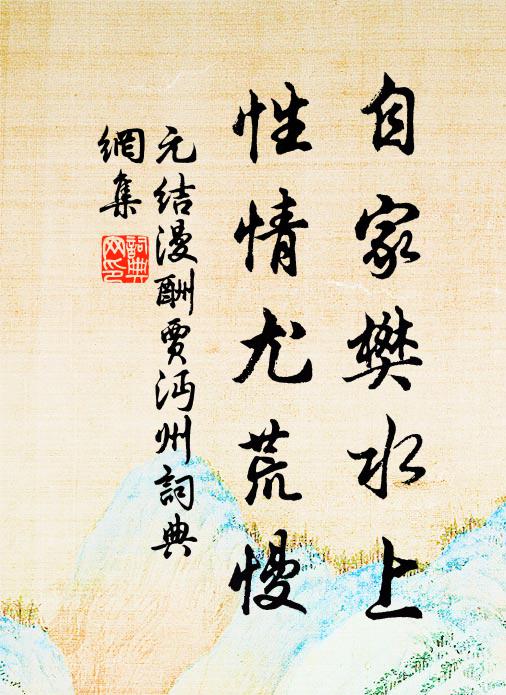 自家樊水上
性情尤荒慢
元结漫酬贾沔州詞典
網集
詞典
网印